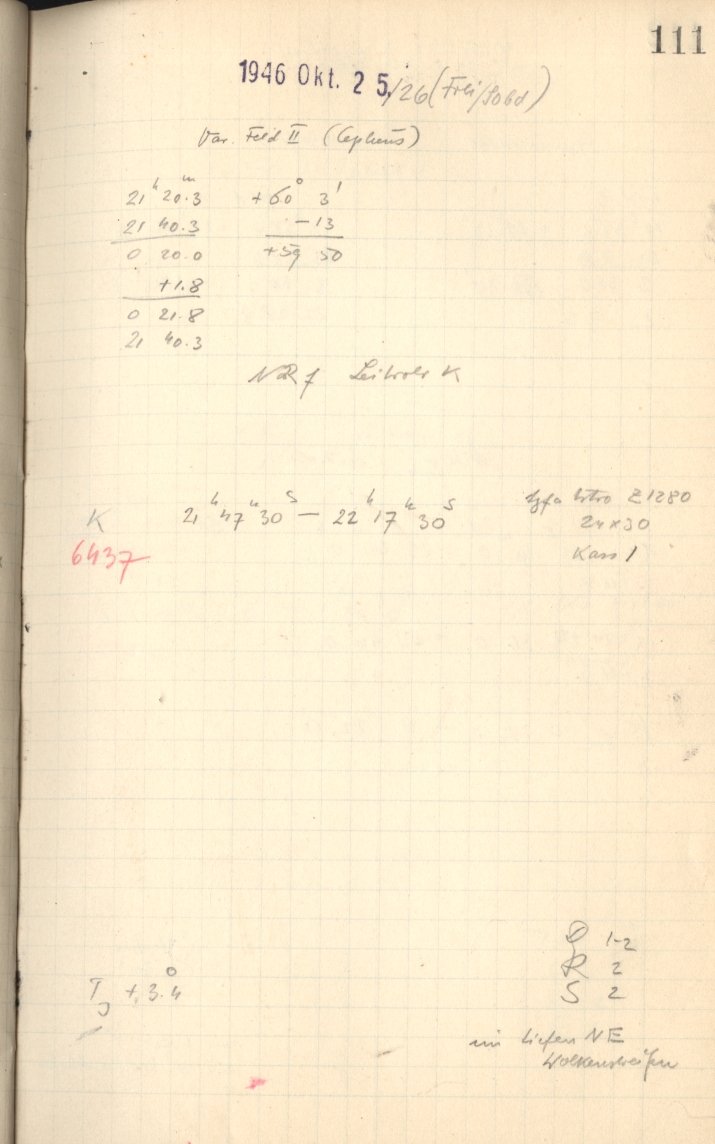 111
1946 Okt. 25./26 (Frei/Sobd)
Var. Feld II (Cepheus)
21h 20.3m +60° 3'
21 40.3 -13
0 20.0 +59 50
+1.8
0 21.8
21 40.3
Leitrohr K
K 21h 47m 30s — 22h 17m 30s Agfa Astro Z1280
6437 24x30
Kass 1
Q 1-2
R 2
S 2
TJ +3.4°
im tiefen NE
Wolkenstreifen